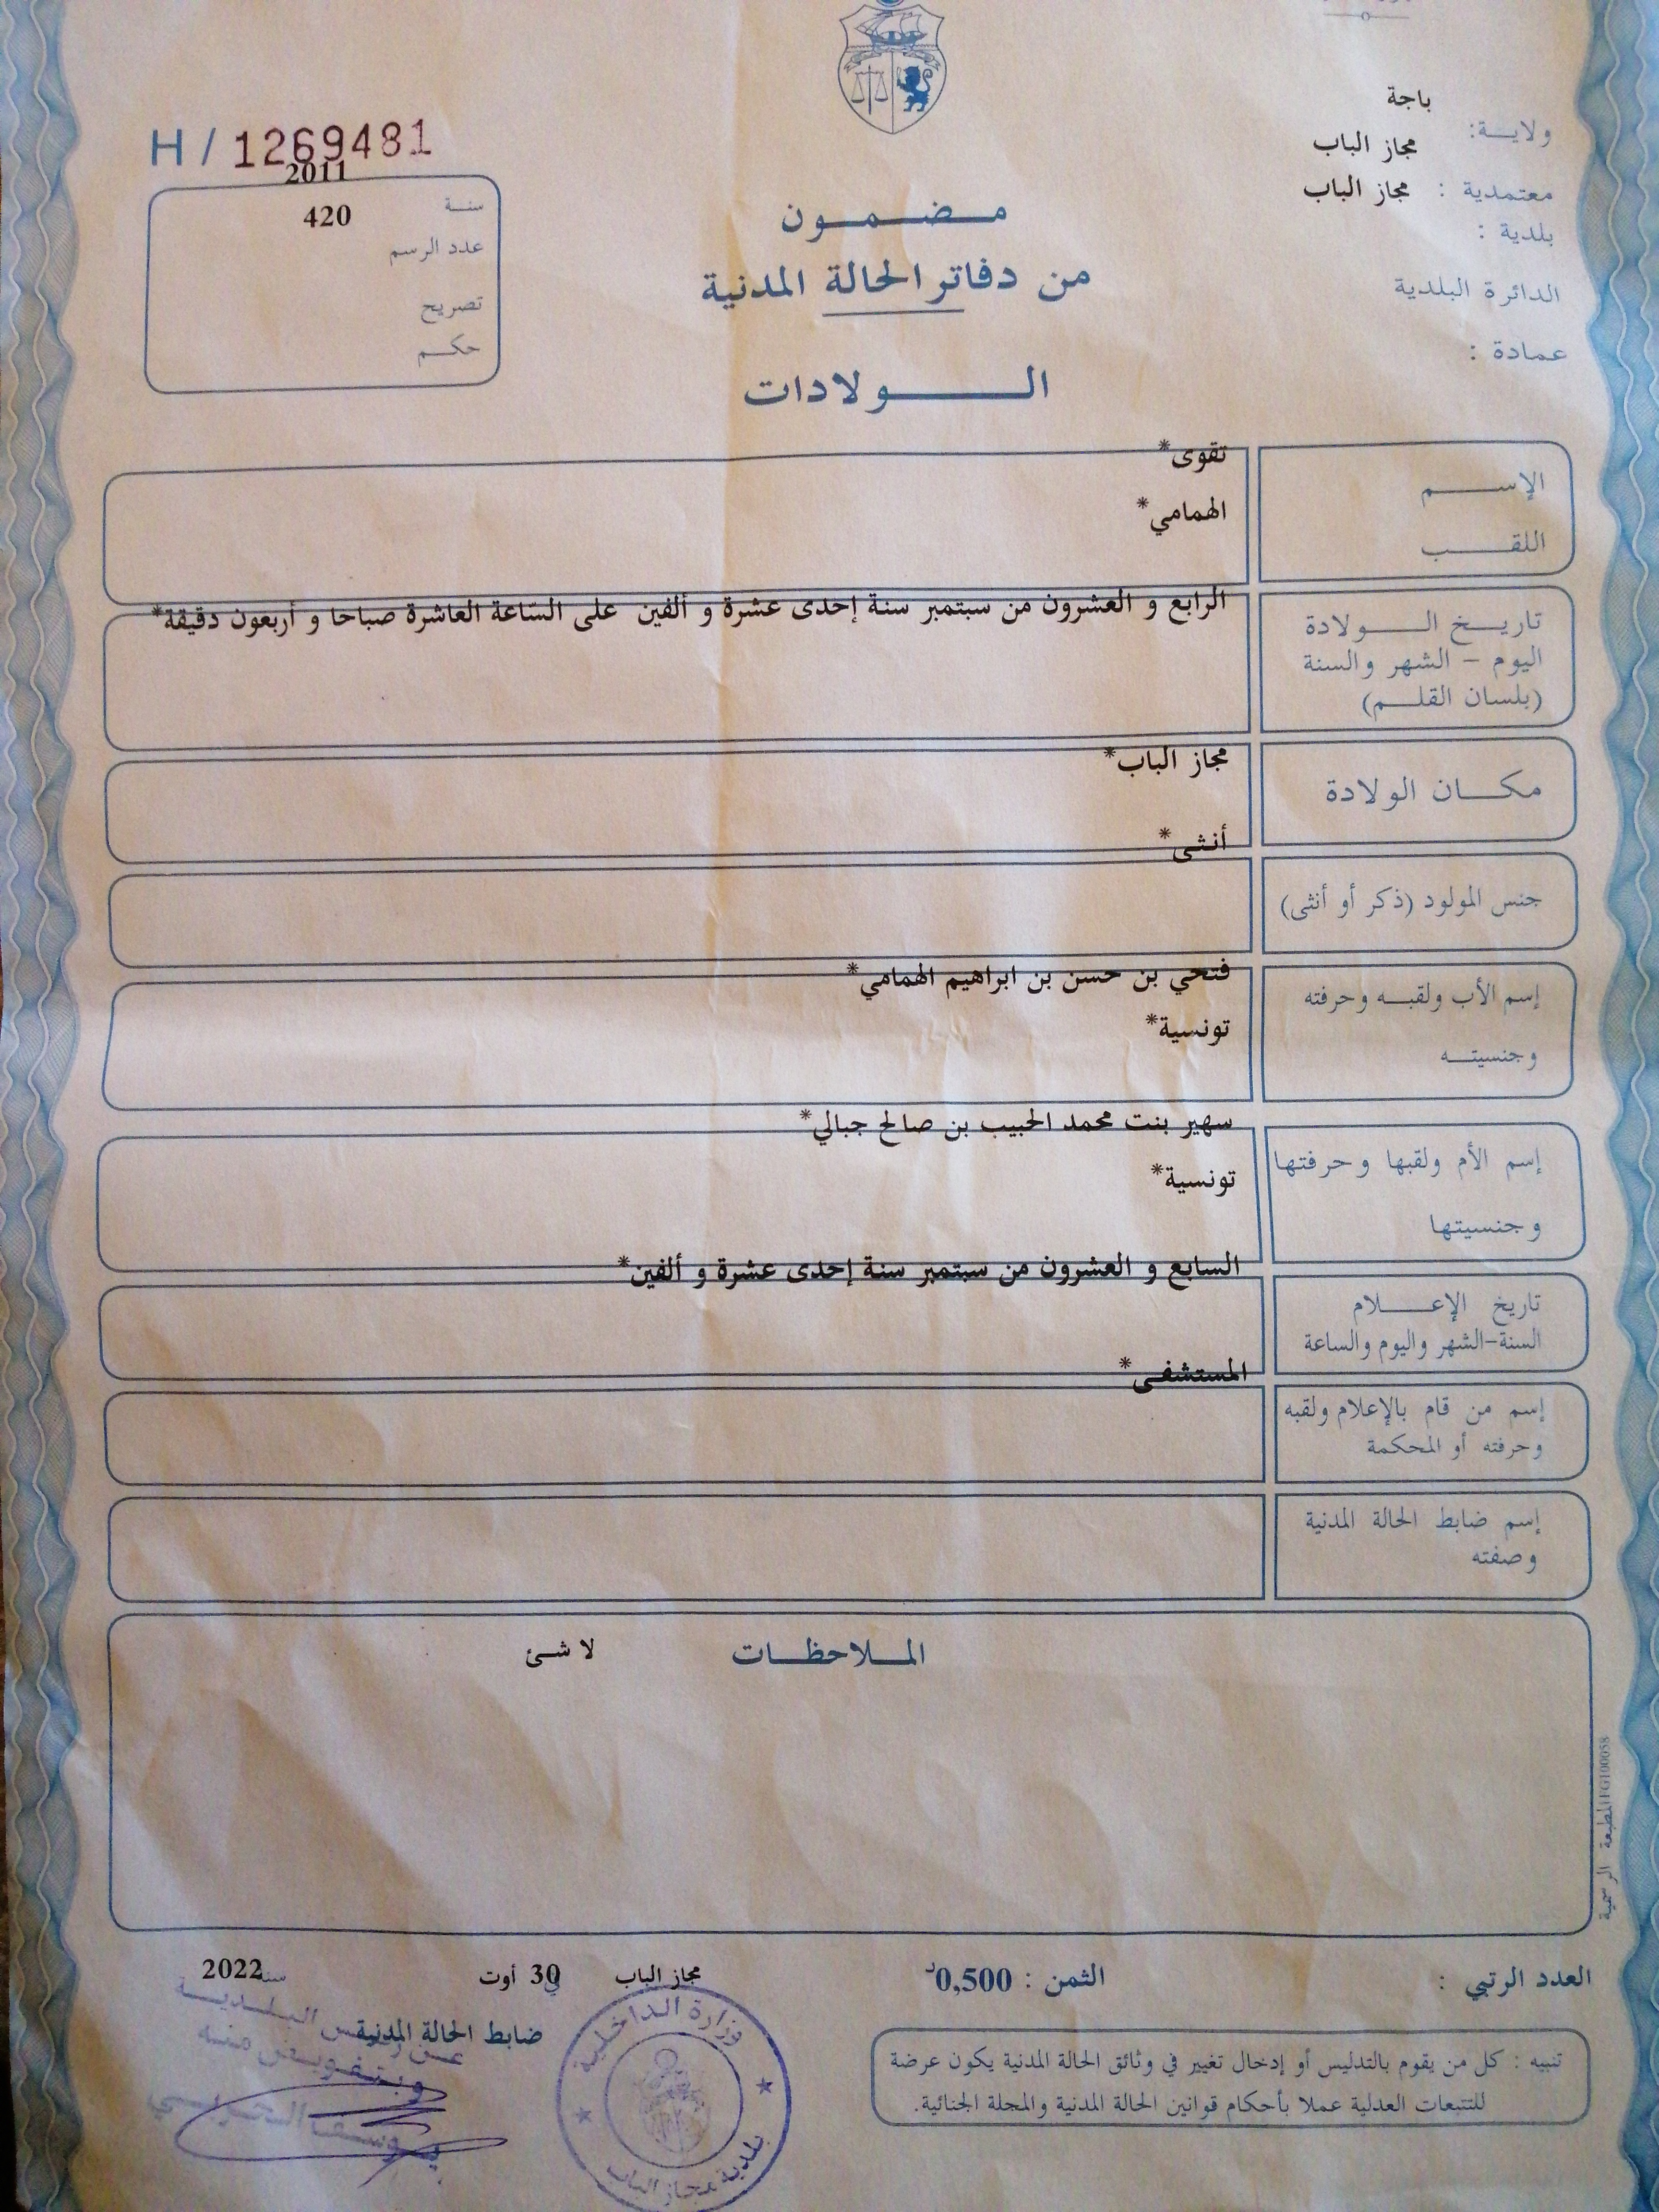 باجة
ولايـــة:
مجاز الباب
معتمدية : مجاز الباب
بلدية :
الدائرة البلدية
عمادة :
H / 1269481
2011
سنـة
420
عدد الرسم
تصريح
حكـــم
مـــضـــمـــون
من دفاتر الحالة المدنية
الـــــــولادات
تقوى*
الإســــــم
الهمامي*
اللقــــــب
الرابع و العشرون من سبتمبر سنة إحدى عشرة و ألفين على السّاعة العاشرة صباحا و أربعون دقيقة*
تاريـــخ الـــــولادة
اليوم - الشهر والسنة
(بلسان القلـــم)
مجاز الباب*
مكـــــان الولادة
أنثى*
جنس المولود (ذكر أو أنثى)
فتحي بن حسن بن ابراهيم الهمامي*
إسم الأب ولقبـــه وحرفته
تونسية*
وجنسيتـــه
سهير بنت محمد الحبيب بن صالح جبالي*
إسم الأم ولقبها وحرفتها
تونسية*
وجنسيتها
السابع و العشرون من سبتمبر سنة إحدى عشرة و ألفين*
تاريخ الإعـــــلام
السنة-الشهر واليوم والساعة
المستشفى*
إسم من قام بالإعلام ولقبه
وحرفته أو المحكمة
إسم ضابط الحالة المدنية
وصفته
المـــلاحظـــات
لا شئ
المطبعة الرسمية FG100058
العدد الرتبي :
الثمن : 0,500د
مجاز الباب في 30 أوت سنة 2022
ضابط الحالة المدنية
تنبيه : كل من يقوم بالتدليس أو إدخال تغيير في وثائق الحالة المدنية يكون عرضة
للتتبعات العدلية عملا بأحكام قوانين الحالة المدنية والمجلة الجنائية.
وزارة الداخلية
بلدية مجاز الباب
عن رئيس البلدية
وبتفويض منه